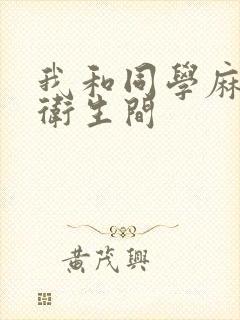 我和同學麻
衛生間
黃茂興